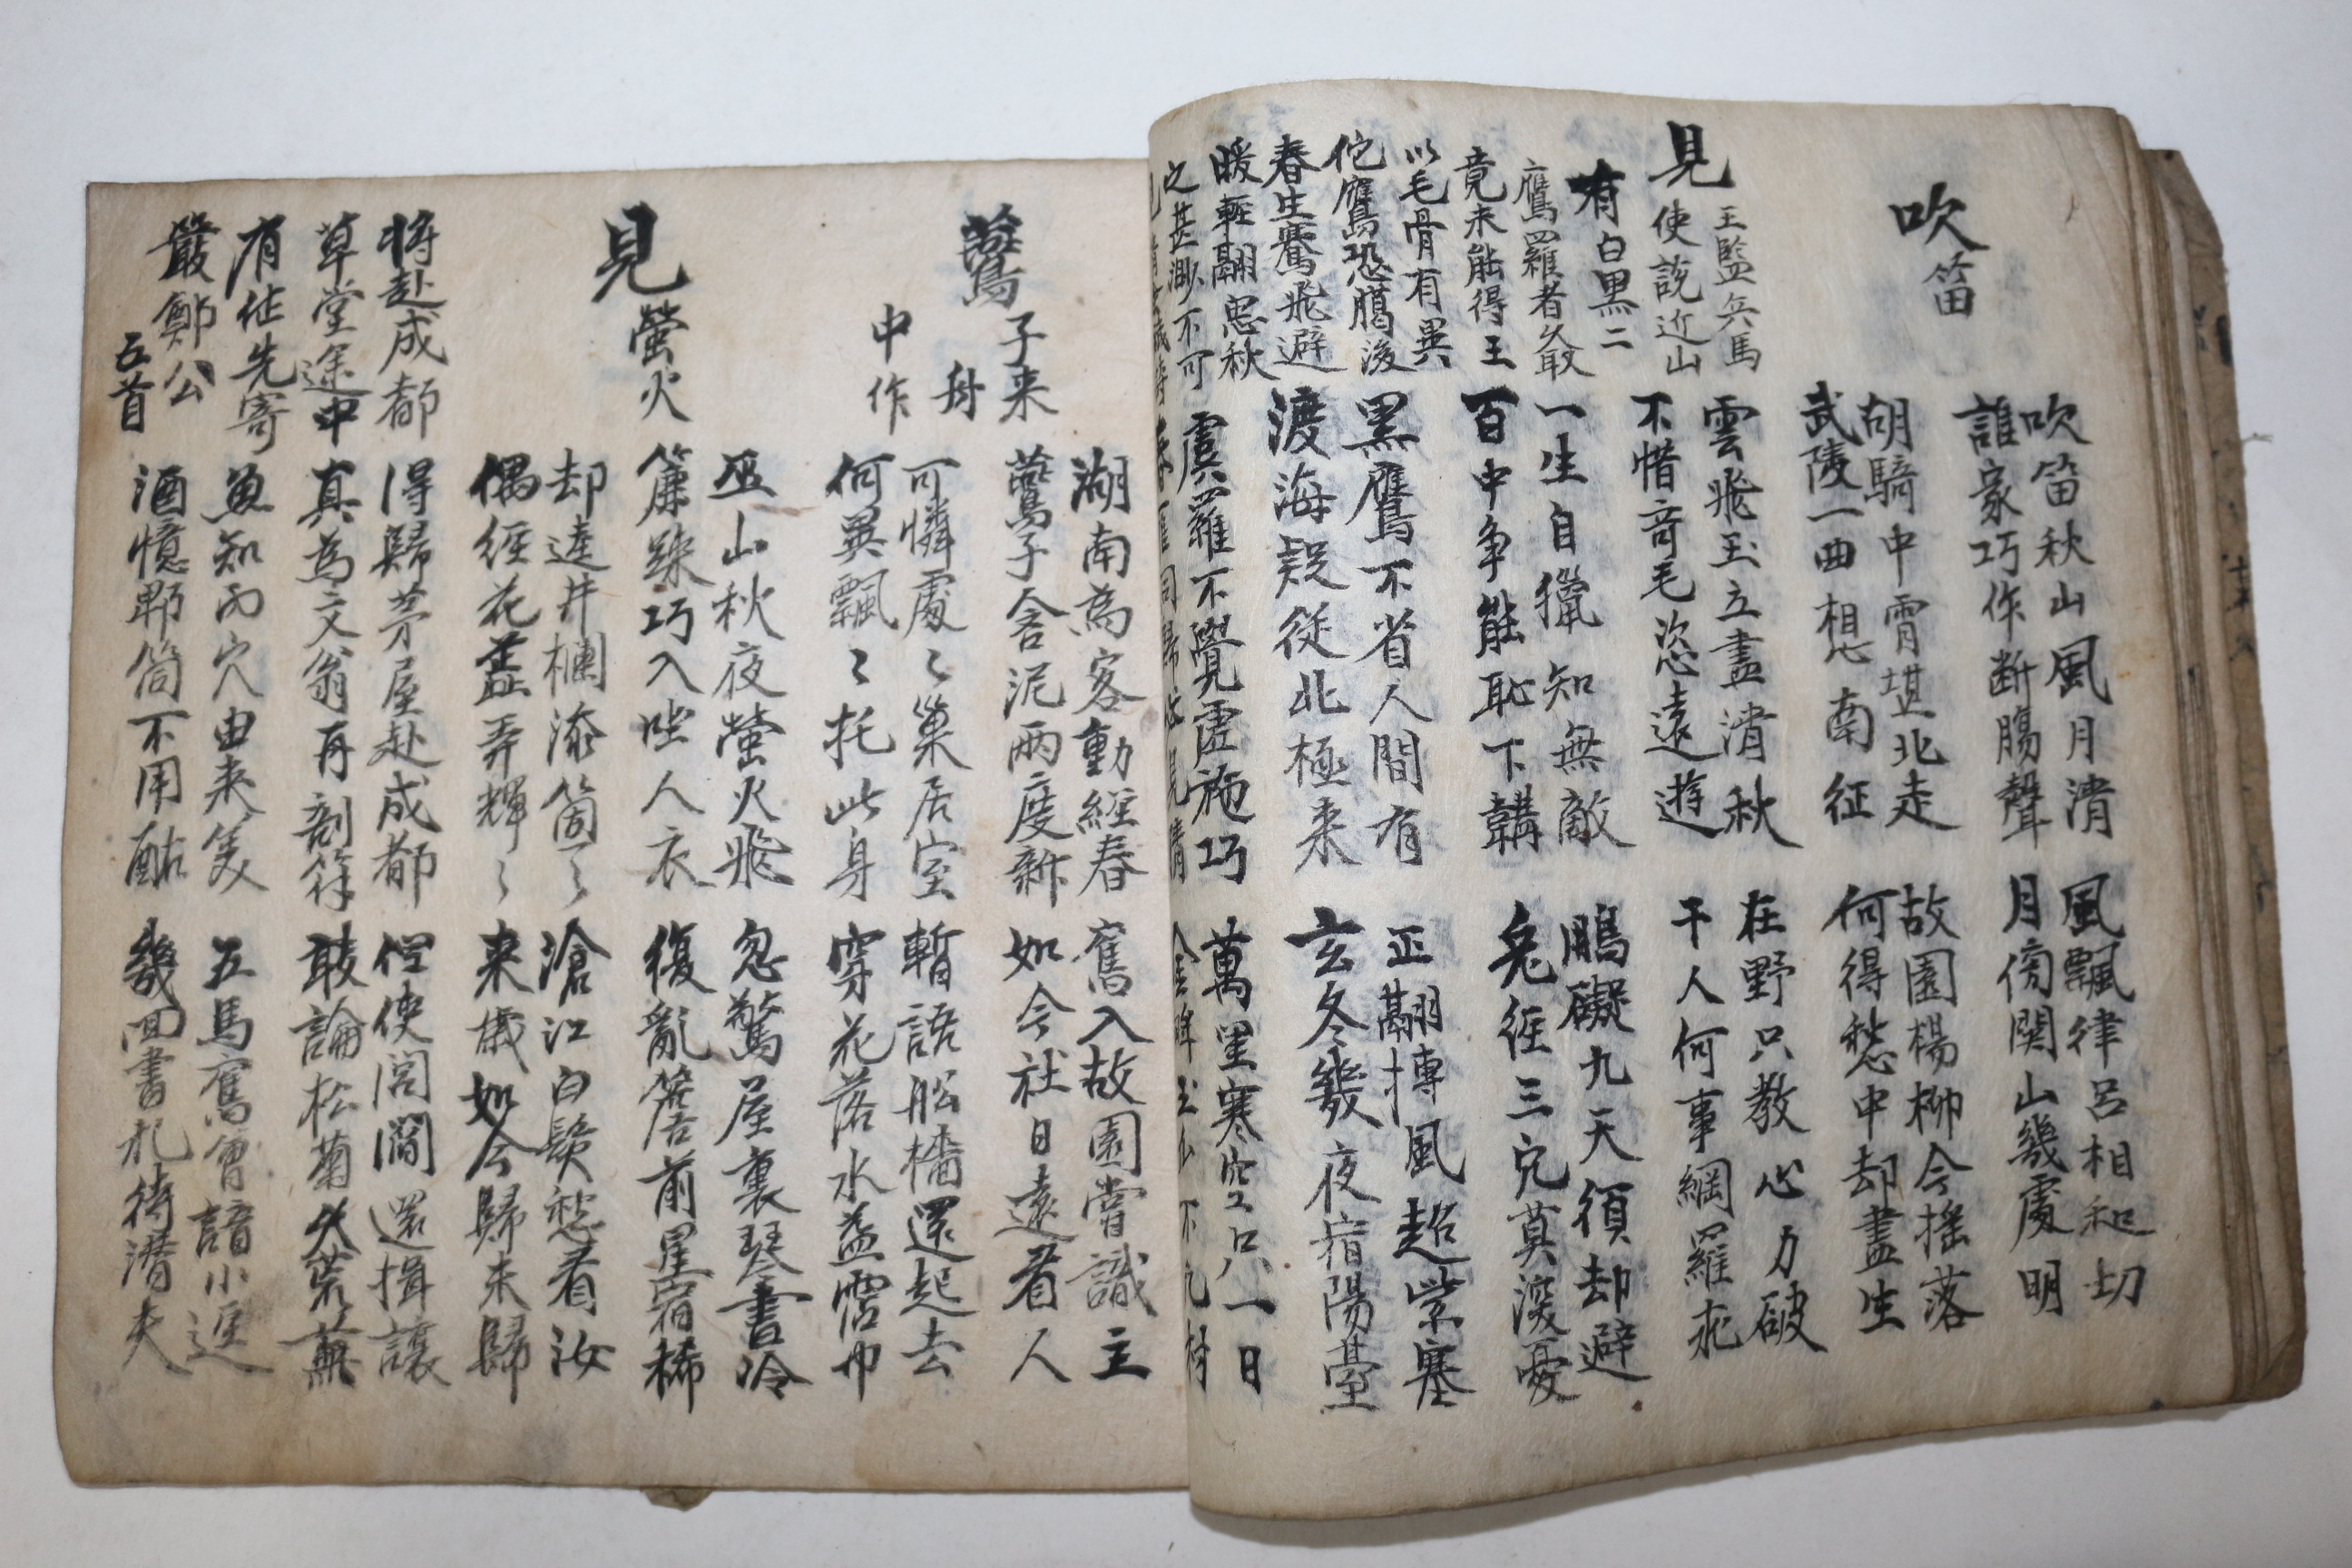 吹笛
吹笛秋山風月清
誰家巧作断膓聲
風飄律呂相和切
月傍関山幾處明
胡騎中宵堪北走
武陵一曲想南征
故園楊柳今揺落
何得愁中却盡生
見王監兵馬
使説近山
有白黒二
鷹羅者久取
竟未能得王
以毛骨有異
佗鷹恐臈後
春生騫飛避
暖輕翮思秋
之甚渺不可
雲飛玉立盡清秋
不惜奇毛恣遠遊
在野只教心力破
干人何事綱羅求
一生自獵知無敵
百中争能耻下韝
鵬礙九天須却避
兔經三穴莫深憂
黒鷹不省人間有
渡海疑從北極来
正翮摶風超紫塞
玄冬幾夜宿陽臺
虞羅不覺虚施巧
春雁同歸必見猜
萬里寒空只一日
金眸玉爪不凡材
鷰子来
舟
中作
湖南為客動經春
鷰子含泥兩度新
舊入故園嘗識主
如今社日遠看人
可憐處〻巢居室
何異飄〻托此身
暫語船檣還起去
穿花落水益霑巾
見螢火
巫山秋夜螢火飛
簾踈巧入坐人衣
忽驚屋裏琴書冷
復亂簷前星宿稀
却遶井欄添箇〻
偶經花蘂弄輝〻
滄江白髮愁看汝
来歳如今歸未歸
将赴成都
草堂途中
有作先寄
嚴鄭公
五首
得歸茅屋赴成都
真為文翁再剖符
但使閭閻還揖讓
敢論松菊久荒蕪
魚知丙穴由来美
酒憶郫筒不用酤
五馬舊曾諳小逕
幾回書札待潜夫